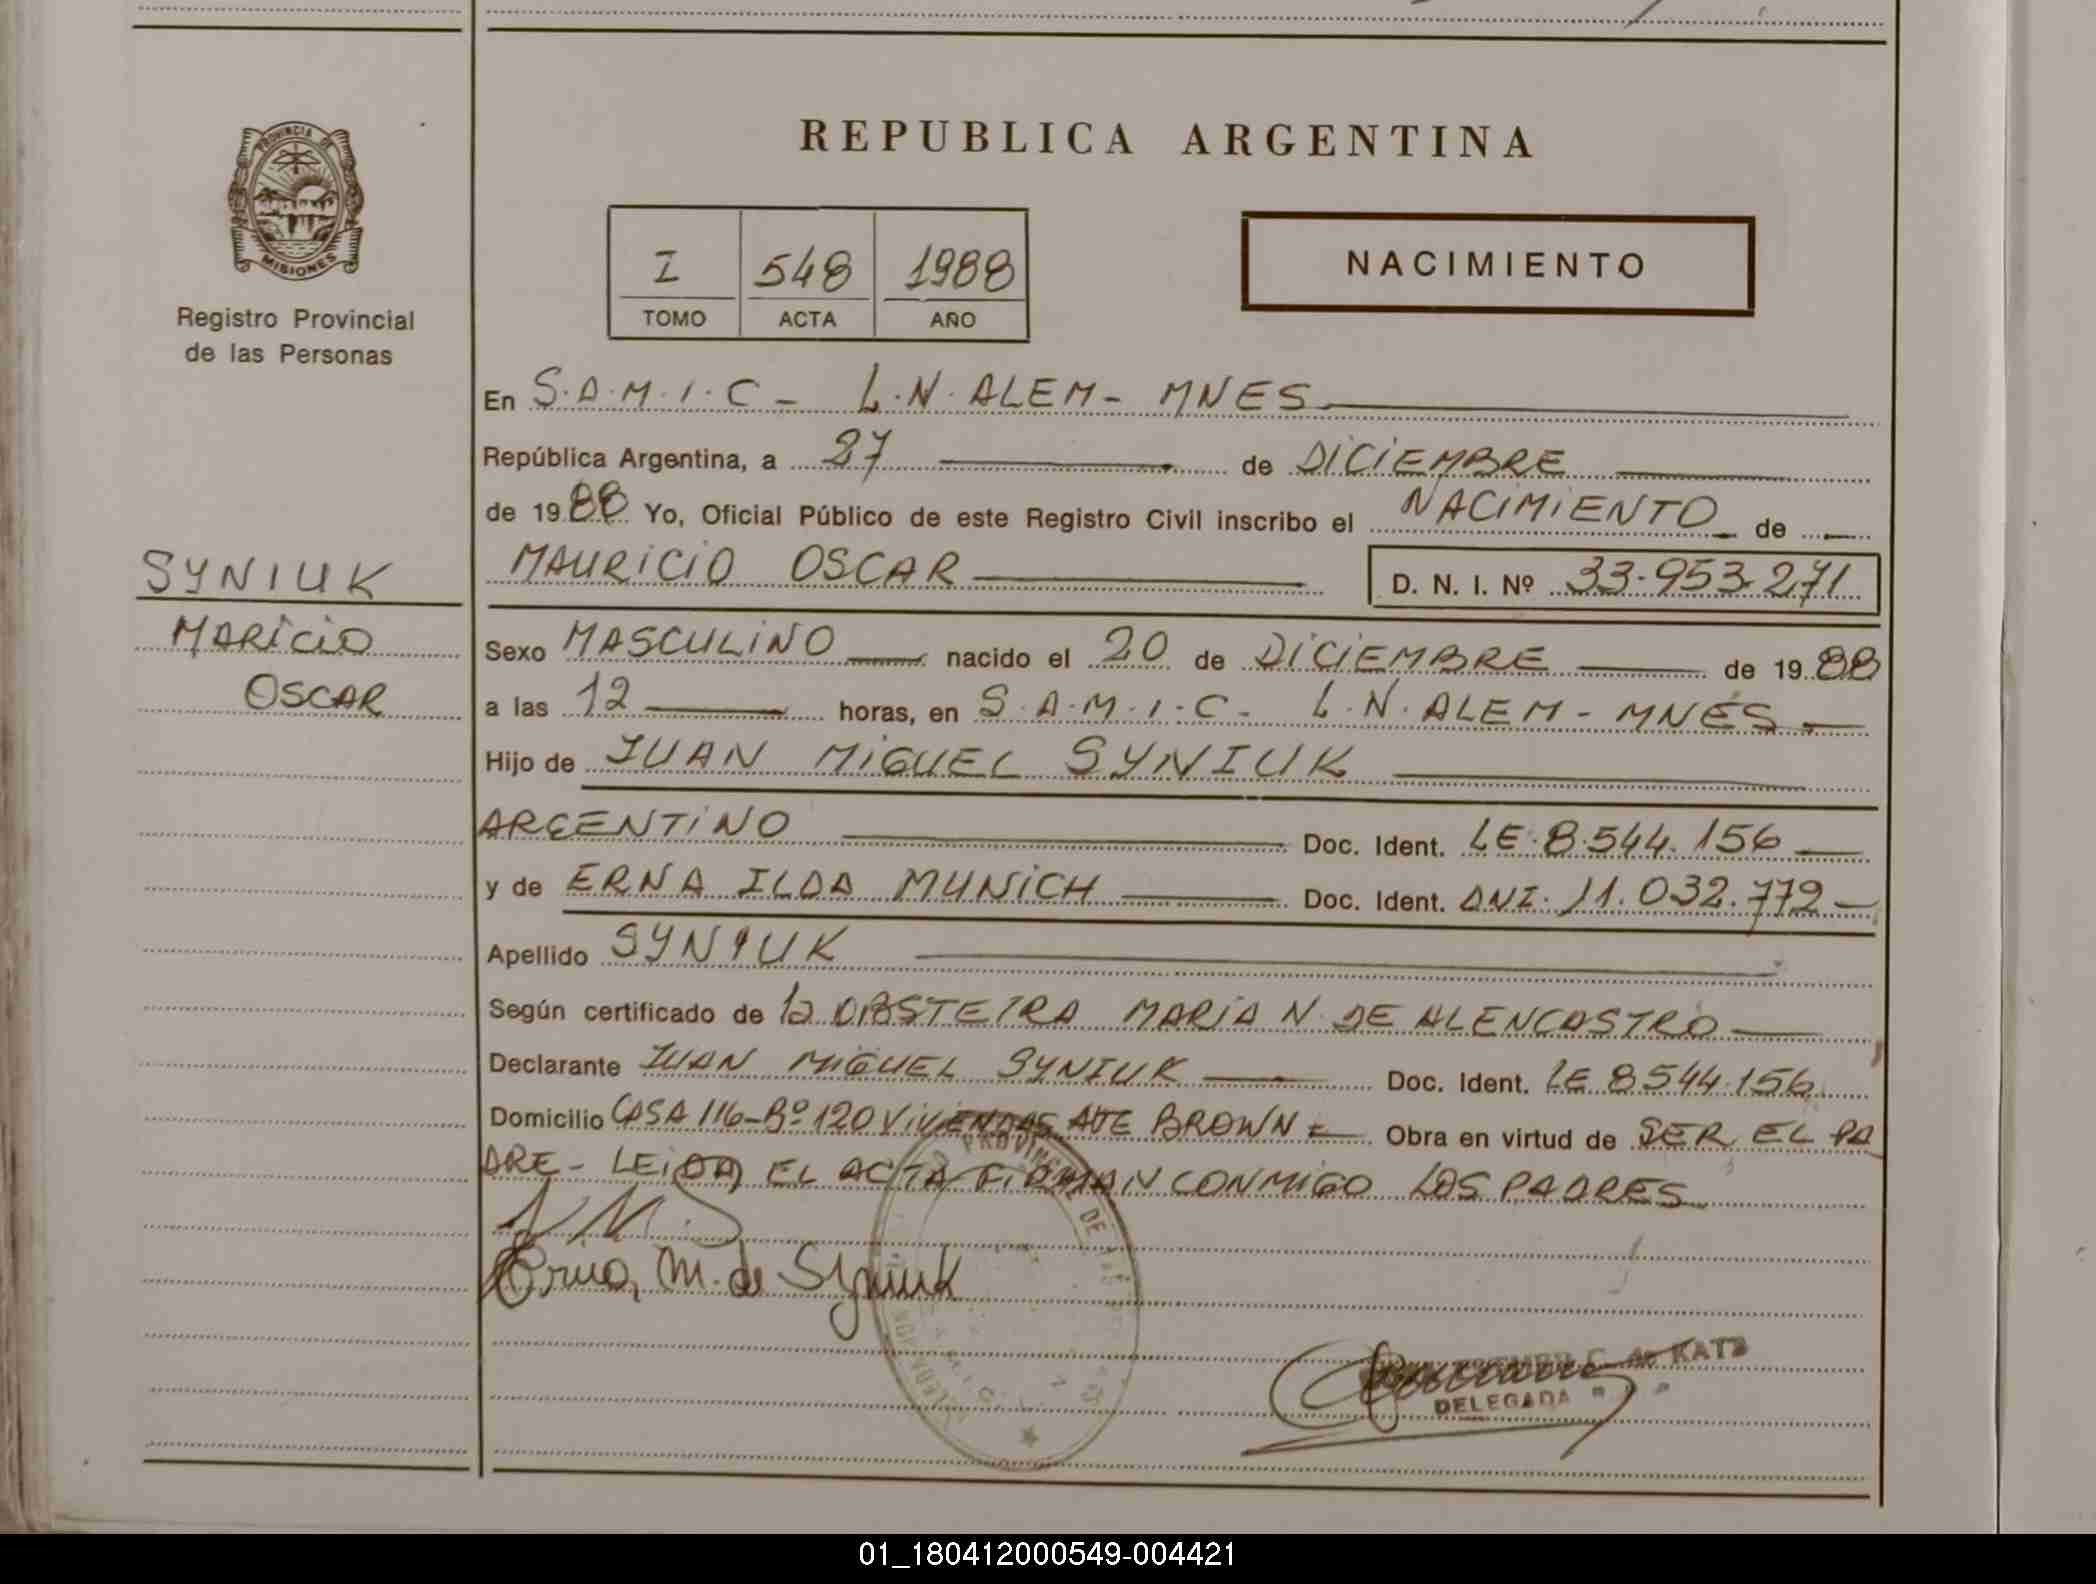 REPUBLICA ARGENTINA
PROVINCIA DE
MISIONES
Registro Provincial
de las Personas
I 548 1988
TOMO ACTA AÑO
NACIMIENTO
En S.A.M.I.C - L.N. ALEM - MNES
República Argentina, a 27 de DICIEMBRE
de 1988 Yo, Oficial Público de este Registro Civil inscribo el NACIMIENTO de
MAURICIO OSCAR D. N. I. Nº 33.953.271
SYNIUK
MARICIO
OSCAR
Sexo MASCULINO nacido el 20 de DICIEMBRE de 1988
a las 12 horas, en S.A.M.I.C - L.N. ALEM - MNES
Hijo de JUAN MIGUEL SYNIUK
ARGENTINO Doc. Ident. LE. 8.544.156
y de ERNA ILDA MUNICH Doc. Ident. DNI. 11.032.772
Apellido SYNIUK
Según certificado de la OBSTETRA MARIA N. DE ALENCASTRO
Declarante JUAN MIGUEL SYNIUK Doc. Ident. LE 8544.156
Domicilio CASA 116-Bº 120 VIVIENDAS ATE BROWN Obra en virtud de SER EL PA
DRE - LEIDA EL ACTA FIRMAN CONMIGO LOS PADRES
Erna M. de Syniuk
PROVINCIAL DE
C. de KATZ
DELEGADA
01_180412000549-004421